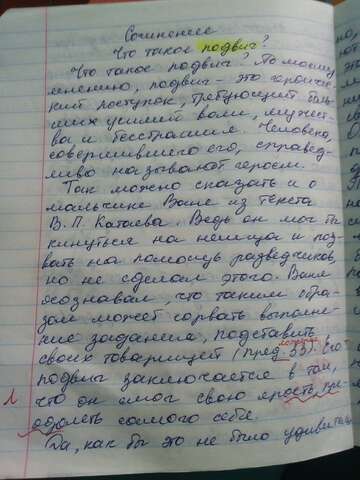 Сочинение
Что такое подвиг?
Что такое подвиг? По моему
мнению, подвиг - это героичес-
кий поступок, требующий боль-
ших усилий воли, мужест-
ва и бесстрашия. Человека,
совершившего его, справед-
ливо называют героем.
Так можно сказать и о
мальчике Ване из текста
В. П. Катаева. Ведь он мог бы
кинуться на немца и поз-
вать на помощь разведчиков,
но не сделал этого. Ваня
осознавал, что таким обра-
зом может сорвать выполне-
ние задания, подставить
своих товарищей (пред. 33). Его
подвиг заключается в том,
что он смог свою ярость, пре-
одолеть самого себя.
Да, как бы это не было удивитель